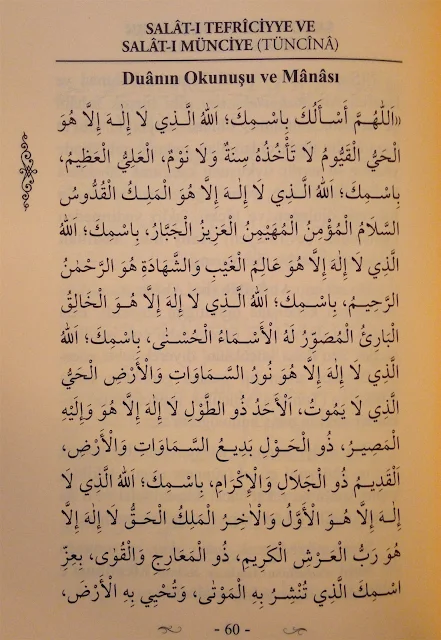 SALÂT-I TEFRÎCİYYE VE
SALÂT-I MÜNCİYE (TÜNCÎNÂ)
Duânın Okunuşu ve Mânâsı
«اَللّٰهُمَّ أَسْأَلُكَ بِاسْمِكَ؛ اَللهُ الَّذِي لَا إِلٰهَ إِلَّا هُوَ
الْحَيُّ الْقَيُّومُ لَا تَأْخُذُهُ سِنَةٌ وَلَا نَوْمٌ، الْعَلِيُّ الْعَظِيمُ،
بِاسْمِكَ؛ اَللهُ الَّذِي لَا إِلٰهَ إِلَّا هُوَ الْمَلِكُ الْقُدُّوسُ
السَّلَامُ الْمُؤْمِنُ الْمُهَيْمِنُ الْعَزِيزُ الْجَبَّارُ، بِاسْمِكَ؛ اَللهُ
الَّذِي لَا إِلٰهَ إِلَّا هُوَ عَالِمُ الْغَيْبِ وَالشَّهَادَةِ هُوَ الرَّحْمٰنُ
الرَّحِيمُ، بِاسْمِكَ؛ اَللهُ الَّذِي لَا إِلٰهَ إِلَّا هُوَ الْخَالِقُ
الْبَارِئُ الْمُصَوِّرُ لَهُ الْأَسْمَاءُ الْحُسْنٰى، بِاسْمِكَ؛ اَللهُ
الَّذِي لَا إِلٰهَ إِلَّا هُوَ نُورُ السَّمَاوَاتِ وَالْأَرْضِ الْحَيُّ
الَّذِي لَا يَمُوتُ، اَلْأَحَدُ ذُو الطَّوْلِ لَا إِلٰهَ إِلَّا هُوَ وَإِلَيْهِ
الْمَصِيرُ، ذُو الْحَوْلِ بَدِيعِ السَّمَاوَاتِ وَالْأَرْضِ،
اَلْقَدِيمُ ذُو الْجَلَالِ وَالْإِكْرَامِ، بِاسْمِكَ؛ اَللهُ الَّذِي لَا
إِلٰهَ إِلَّا هُوَ الْأَوَّلُ وَالْاٰخِرُ الْمَلِكُ الْحَقُّ لَا إِلٰهَ إِلَّا
هُوَ رَبُّ الْعَرْشِ الْكَرِيمِ، ذُو الْمَعَارِجِ وَالْقُوٰى، بِعِزِّ
اسْمِكَ الَّذِي تُنْشِرُ بِهِ الْمَوْتٰى، وَتُحْيِي بِهِ الْأَرْضَ،
- 60 -